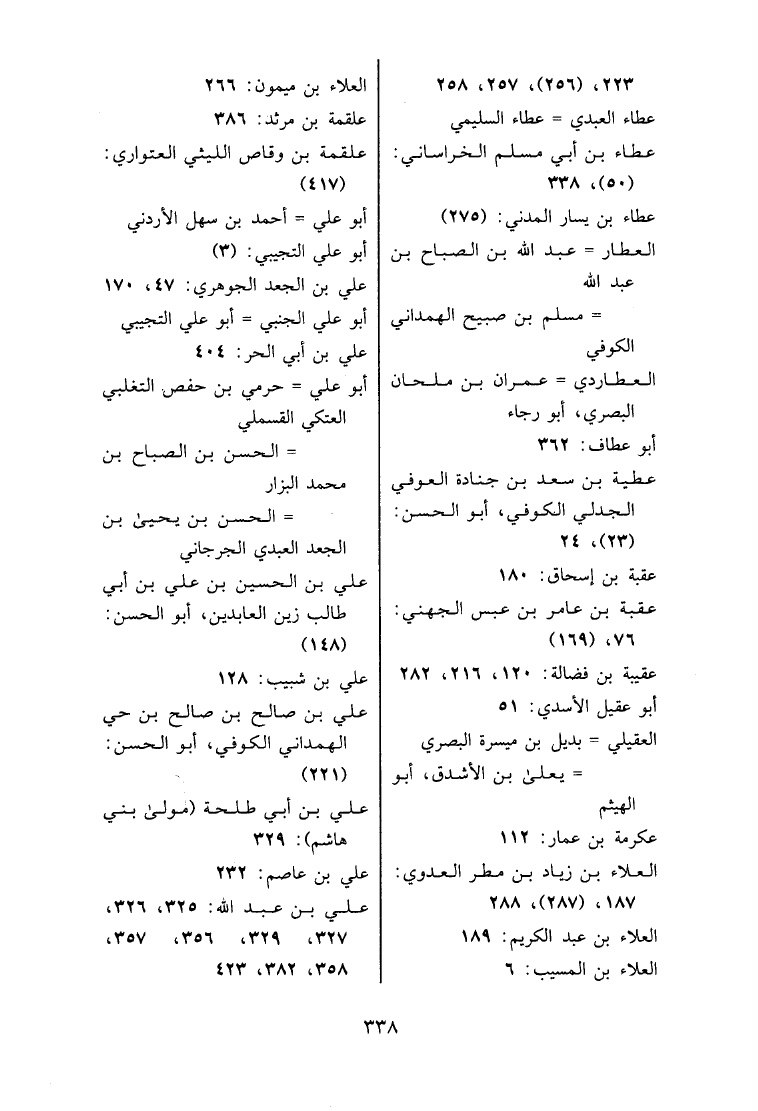 ٢٢٣، (٢٥٦)، ٢٥٧، ٢٥٨
عطاء العبدي = عطاء السليمي
عطاء بن أبي مسلم الخراساني:
(٥٠)، ٣٣٨
عطاء بن يسار المدني: (٢٧٥)
العطار = عبد الله بن الصباح بن
عبد الله
= مسلم بن صبيح الهمداني
الكوفي
العطاردي = عمران بن ملحان
البصري، أبو رجاء
أبو عطاف: ٣٦٢
عطية بن سعد بن جنادة العوفي
الجدلي الكوفي، أبو الحسن:
(٢٣)، ٢٤
عقبة بن إسحاق: ١٨٠
عقبة بن عامر بن عبس الجهني:
٧٦، (١٦٩)
عقيبة بن فضالة: ١٢٠، ٢١٦، ٢٨٢
أبو عقيل الأسدي: ٥١
العقيلي = بديل بن ميسرة البصري
= يعلىٰ بن الأشدق، أبو
الهيثم
عكرمة بن عمار: ١١٢
العلاء بن زياد بن مطر العدوي:
١٨٧، (٢٨٧)، ٢٨٨
العلاء بن عبد الكريم: ١٨٩
العلاء بن المسيب: ٦
العلاء بن ميمون: ٢٦٦
علقمة بن مرثد: ٣٨٦
علقمة بن وقاص الليثي العتواري:
(٤١٧)
أبو علي = أحمد بن سهل الأردني
أبو علي التجيبي: (٣)
علي بن الجعد الجوهري: ٤٧، ١٧٠
أبو علي الجنبي = أبو علي التجيبي
علي بن أبي الحر: ٤٠٤
أبو علي = حرمي بن حفص التغلبي
العتكي القسملي
= الحسن بن الصباح بن
محمد البزار
= الحسن بن يحيىٰ بن
الجعد العبدي الجرجاني
علي بن الحسين بن علي بن أبي
طالب زين العابدين، أبو الحسن:
(١٤٨)
علي بن شبيب: ١٢٨
علي بن صالح بن صالح بن حي
الهمداني الكوفي، أبو الحسن:
(٢٢١)
علي بن أبي طلحة (مولىٰ بني
هاشم): ٣٢٩
علي بن عاصم: ٢٣٢
علي بن عبد الله: ٣٢٥، ٣٢٦،
٣٢٧، ٣٢٩، ٣٥٦، ٣٥٧،
٣٥٨، ٣٨٢، ٤٢٣
٣٣٨